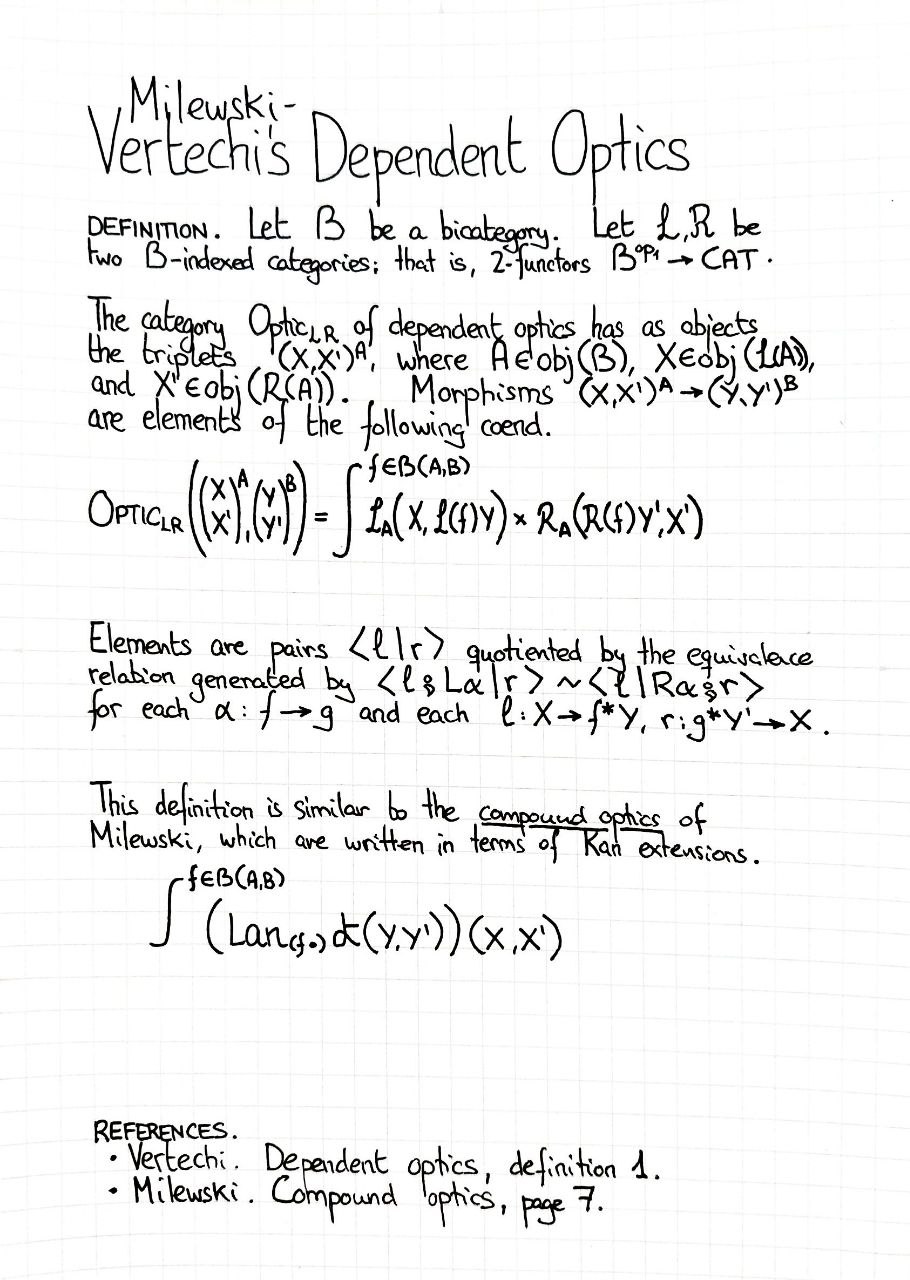 Milewski-
Vertechi's Dependent Optics
DEFINITION. Let B be a bicategory. Let ℒ, R be
two B-indexed categories; that is, 2-functors B^op₁ → CAT.
The category Optic_LR of dependent optics has as objects
the triplets (X,X')^A, where A∈obj(B), X∈obj(ℒ(A)),
and X'∈obj(R(A)). Morphisms (X,X')^A → (Y,Y')^B
are elements of the following coend.
OPTIC_LR ((X X')^A, (Y Y')^B) = ∫^{f∈B(A,B)} ℒ_A(X, ℒ(f)Y) × R_A(R(f)Y', X')
Elements are pairs <l|r> quotiented by the equivalence
relation generated by <l⨟Lα|r> ~ <l|Rα⨟r>
for each α: f → g and each l: X → f*Y, r: g*Y' → X.
This definition is similar to the compound optics of
Milewski, which are written in terms of Kan extensions.
∫^{f∈B(A,B)} (Lan_(f•) ℒ(Y,Y'))(X,X')
REFERENCES.
• Vertechi. Dependent optics, definition 1.
• Milewski. Compound optics, page 7.